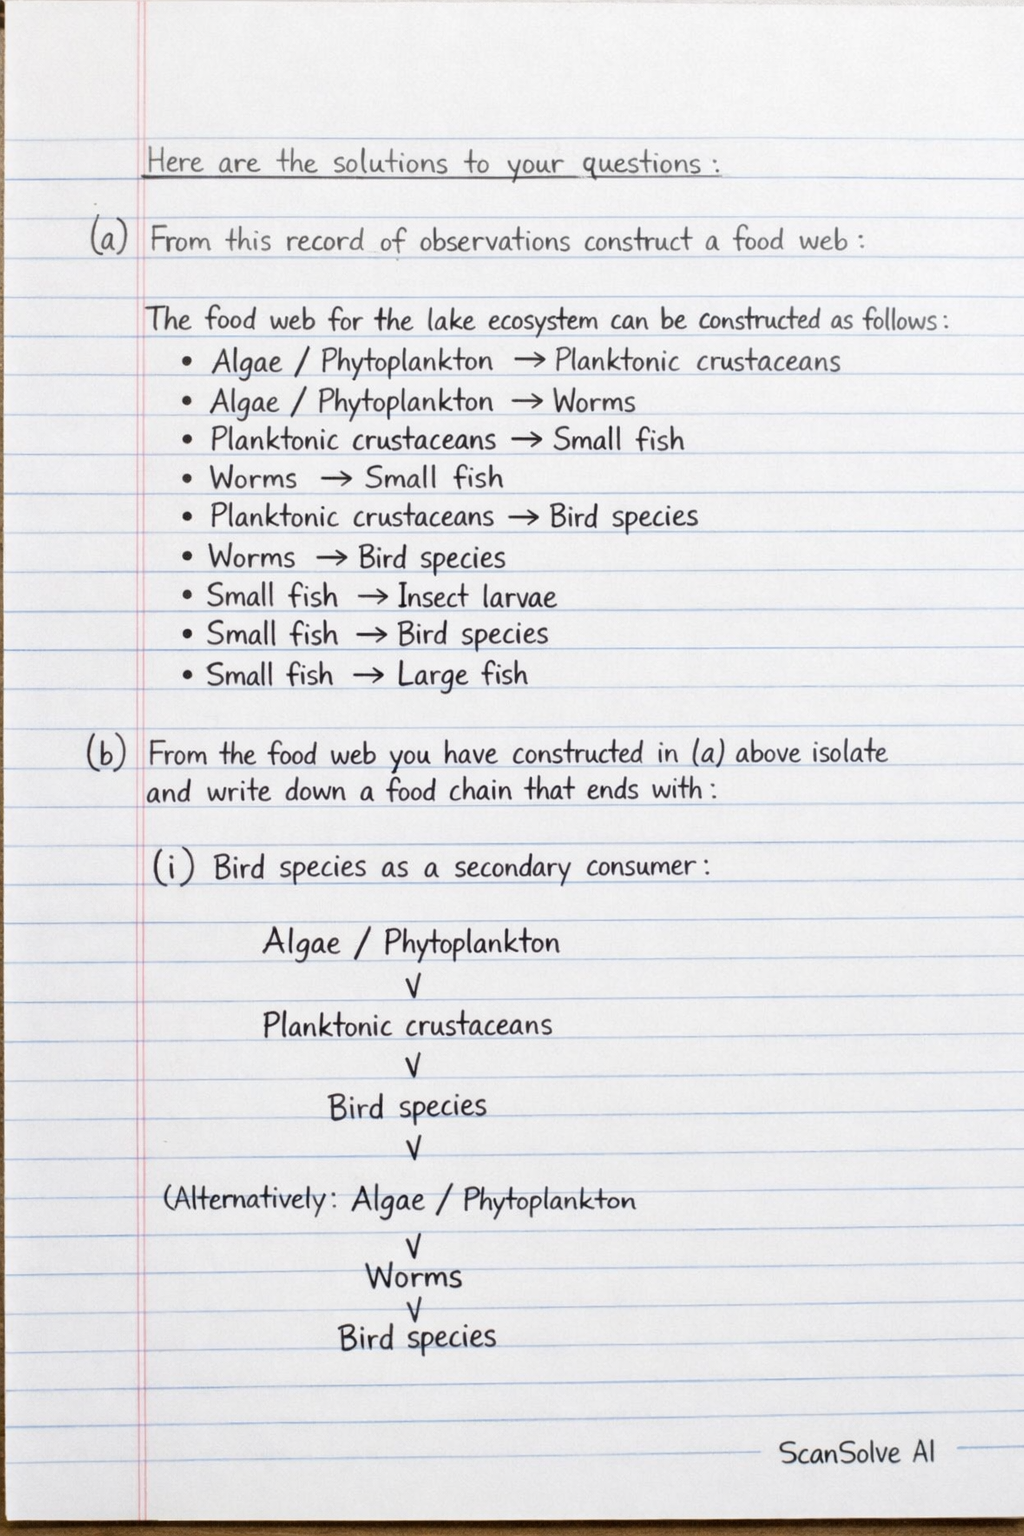 Here are the solutions to your questions :
(a) From this record of observations construct a food web :
The food web for the lake ecosystem can be constructed as follows :
• Algae / Phytoplankton → Planktonic crustaceans
• Algae / Phytoplankton → Worms
• Planktonic crustaceans → Small fish
• Worms → Small fish
• Planktonic crustaceans → Bird species
• Worms → Bird species
• Small fish → Insect larvae
• Small fish → Bird species
• Small fish → Large fish
(b) From the food web you have constructed in (a) above isolate
and write down a food chain that ends with :
(i) Bird species as a secondary consumer :
Algae / Phytoplankton
∨
Planktonic crustaceans
∨
Bird species
∨
(Alternatively: Algae / Phytoplankton
∨
Worms
∨
Bird species
ScanSolve AI